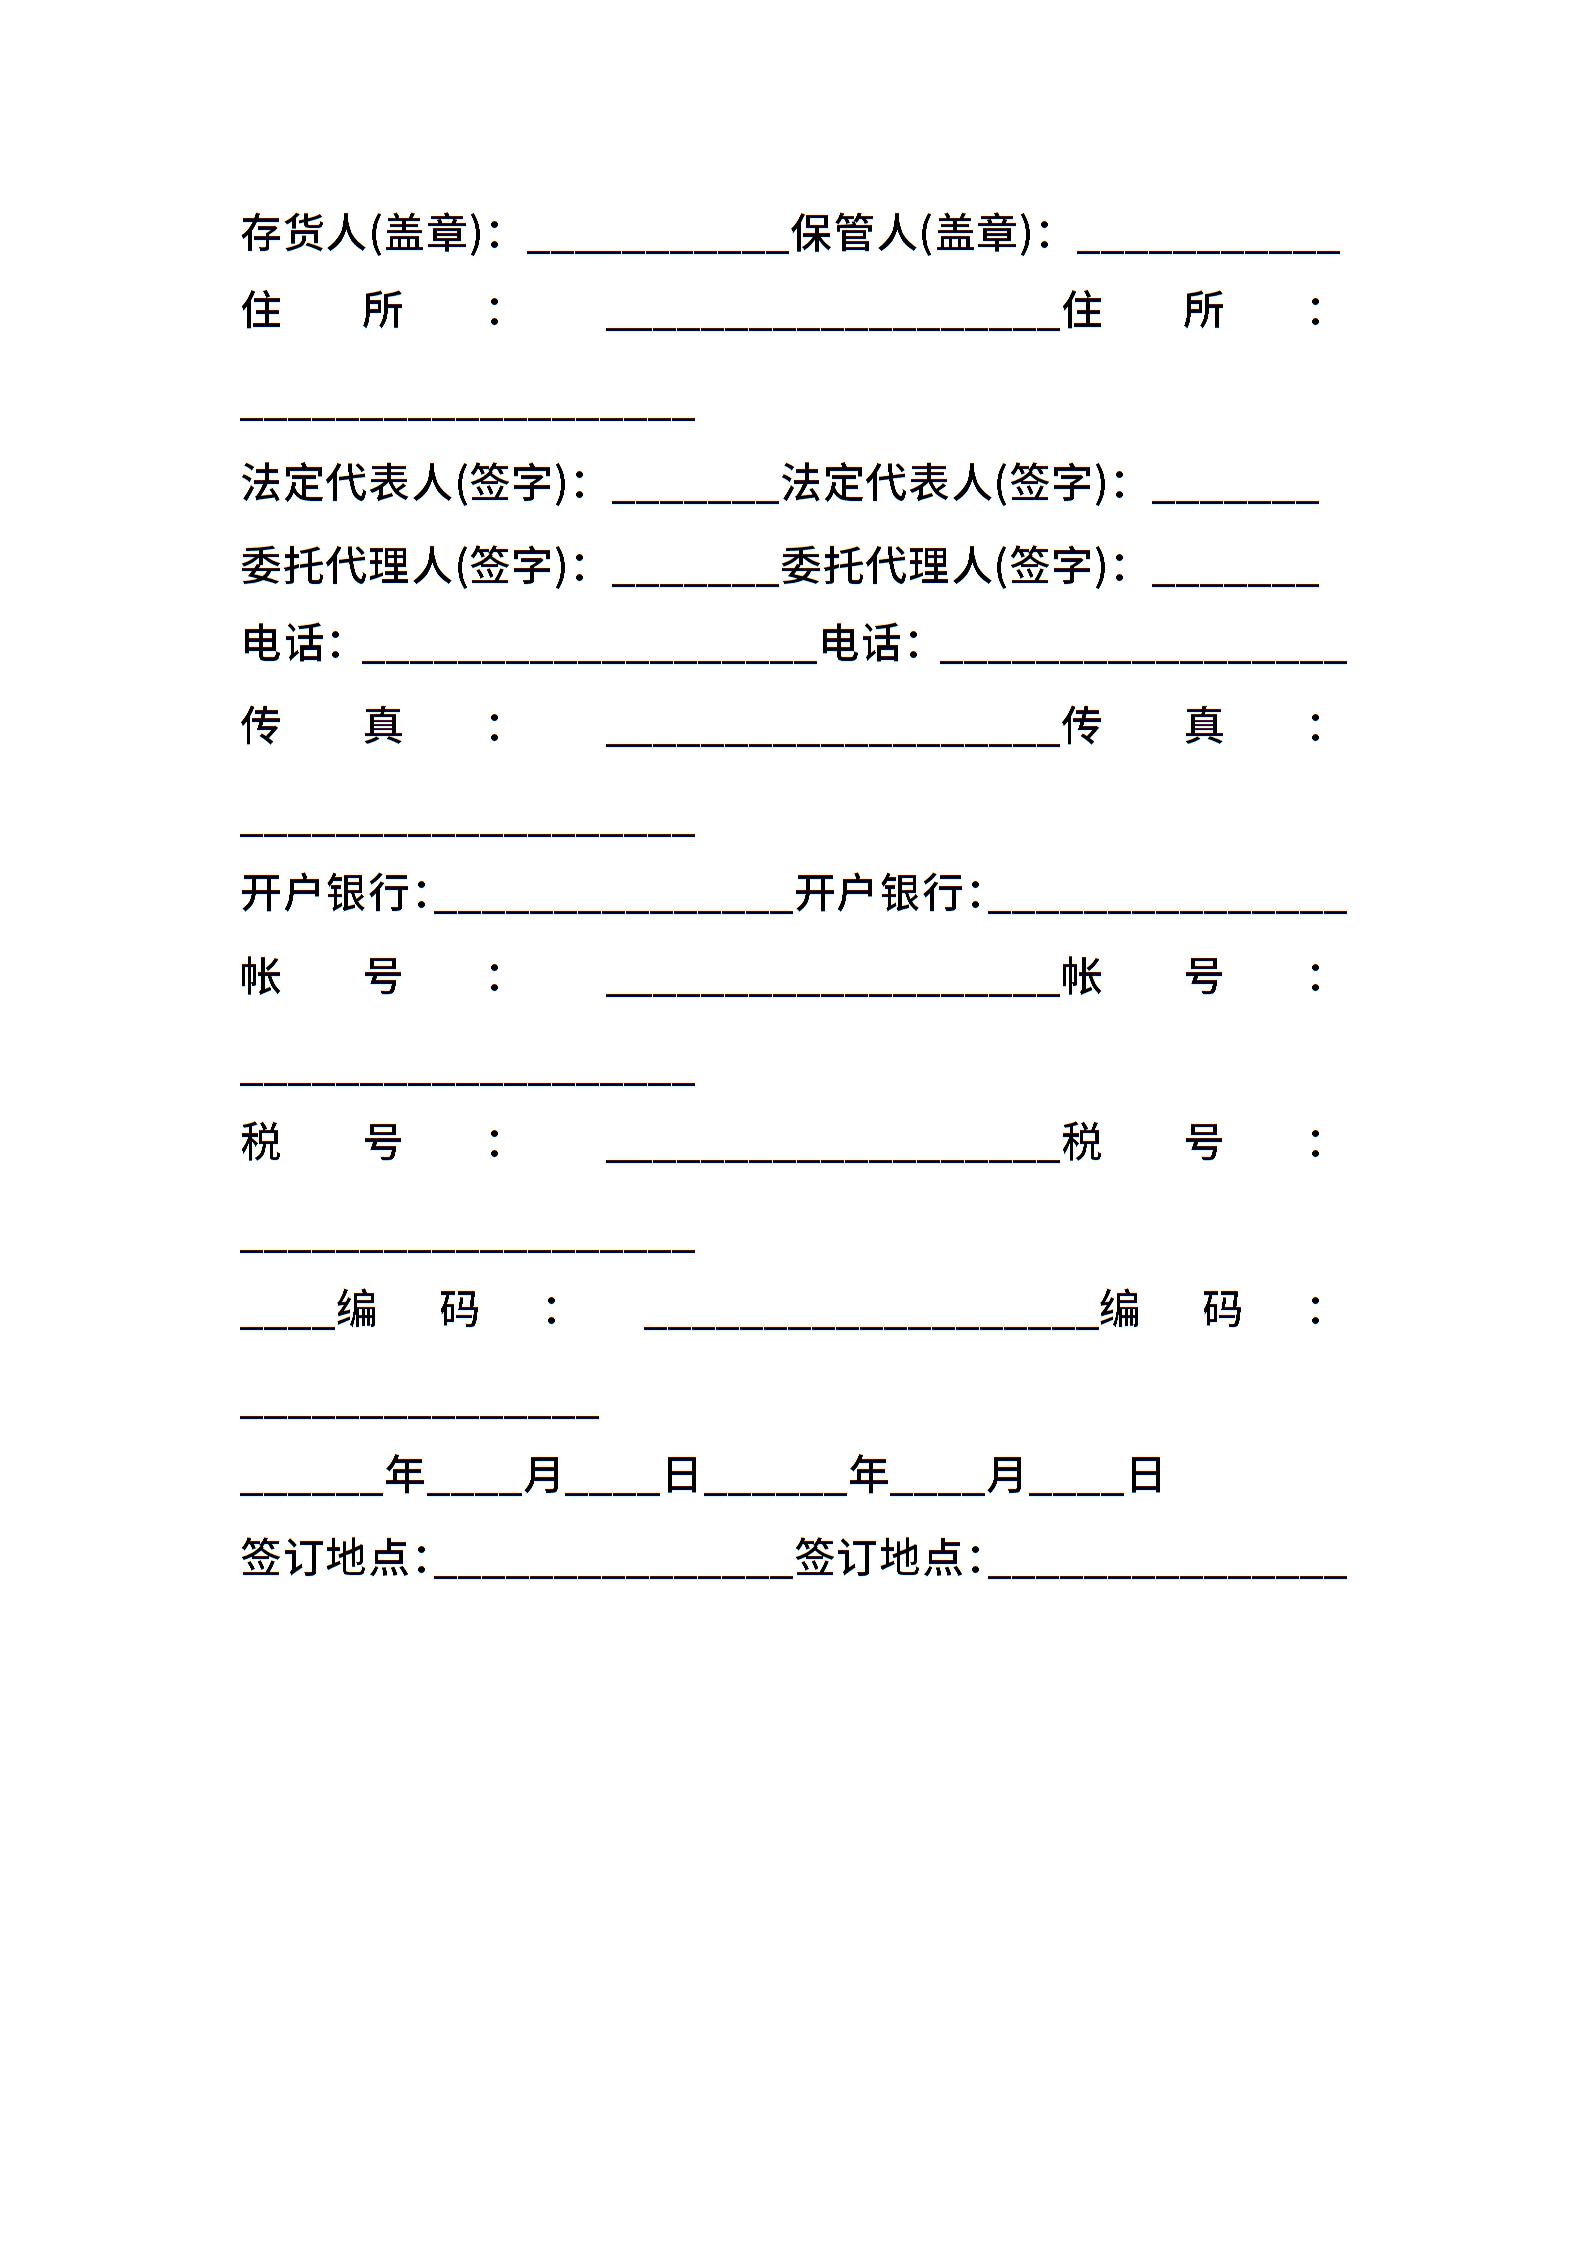 存货人(盖章)：___________保管人(盖章)：___________
住所：___________________住所：
___________________
法定代表人(签字)：_______法定代表人(签字)：_______
委托代理人(签字)：_______委托代理人(签字)：_______
电话：___________________电话：_________________
传真：___________________传真：
___________________
开户银行：_______________开户银行：_______________
帐号：___________________帐号：
___________________
税号：___________________税号：
___________________
____编码：___________________编码：
_______________
______年____月____日______年____月____日
签订地点：_______________签订地点：_______________